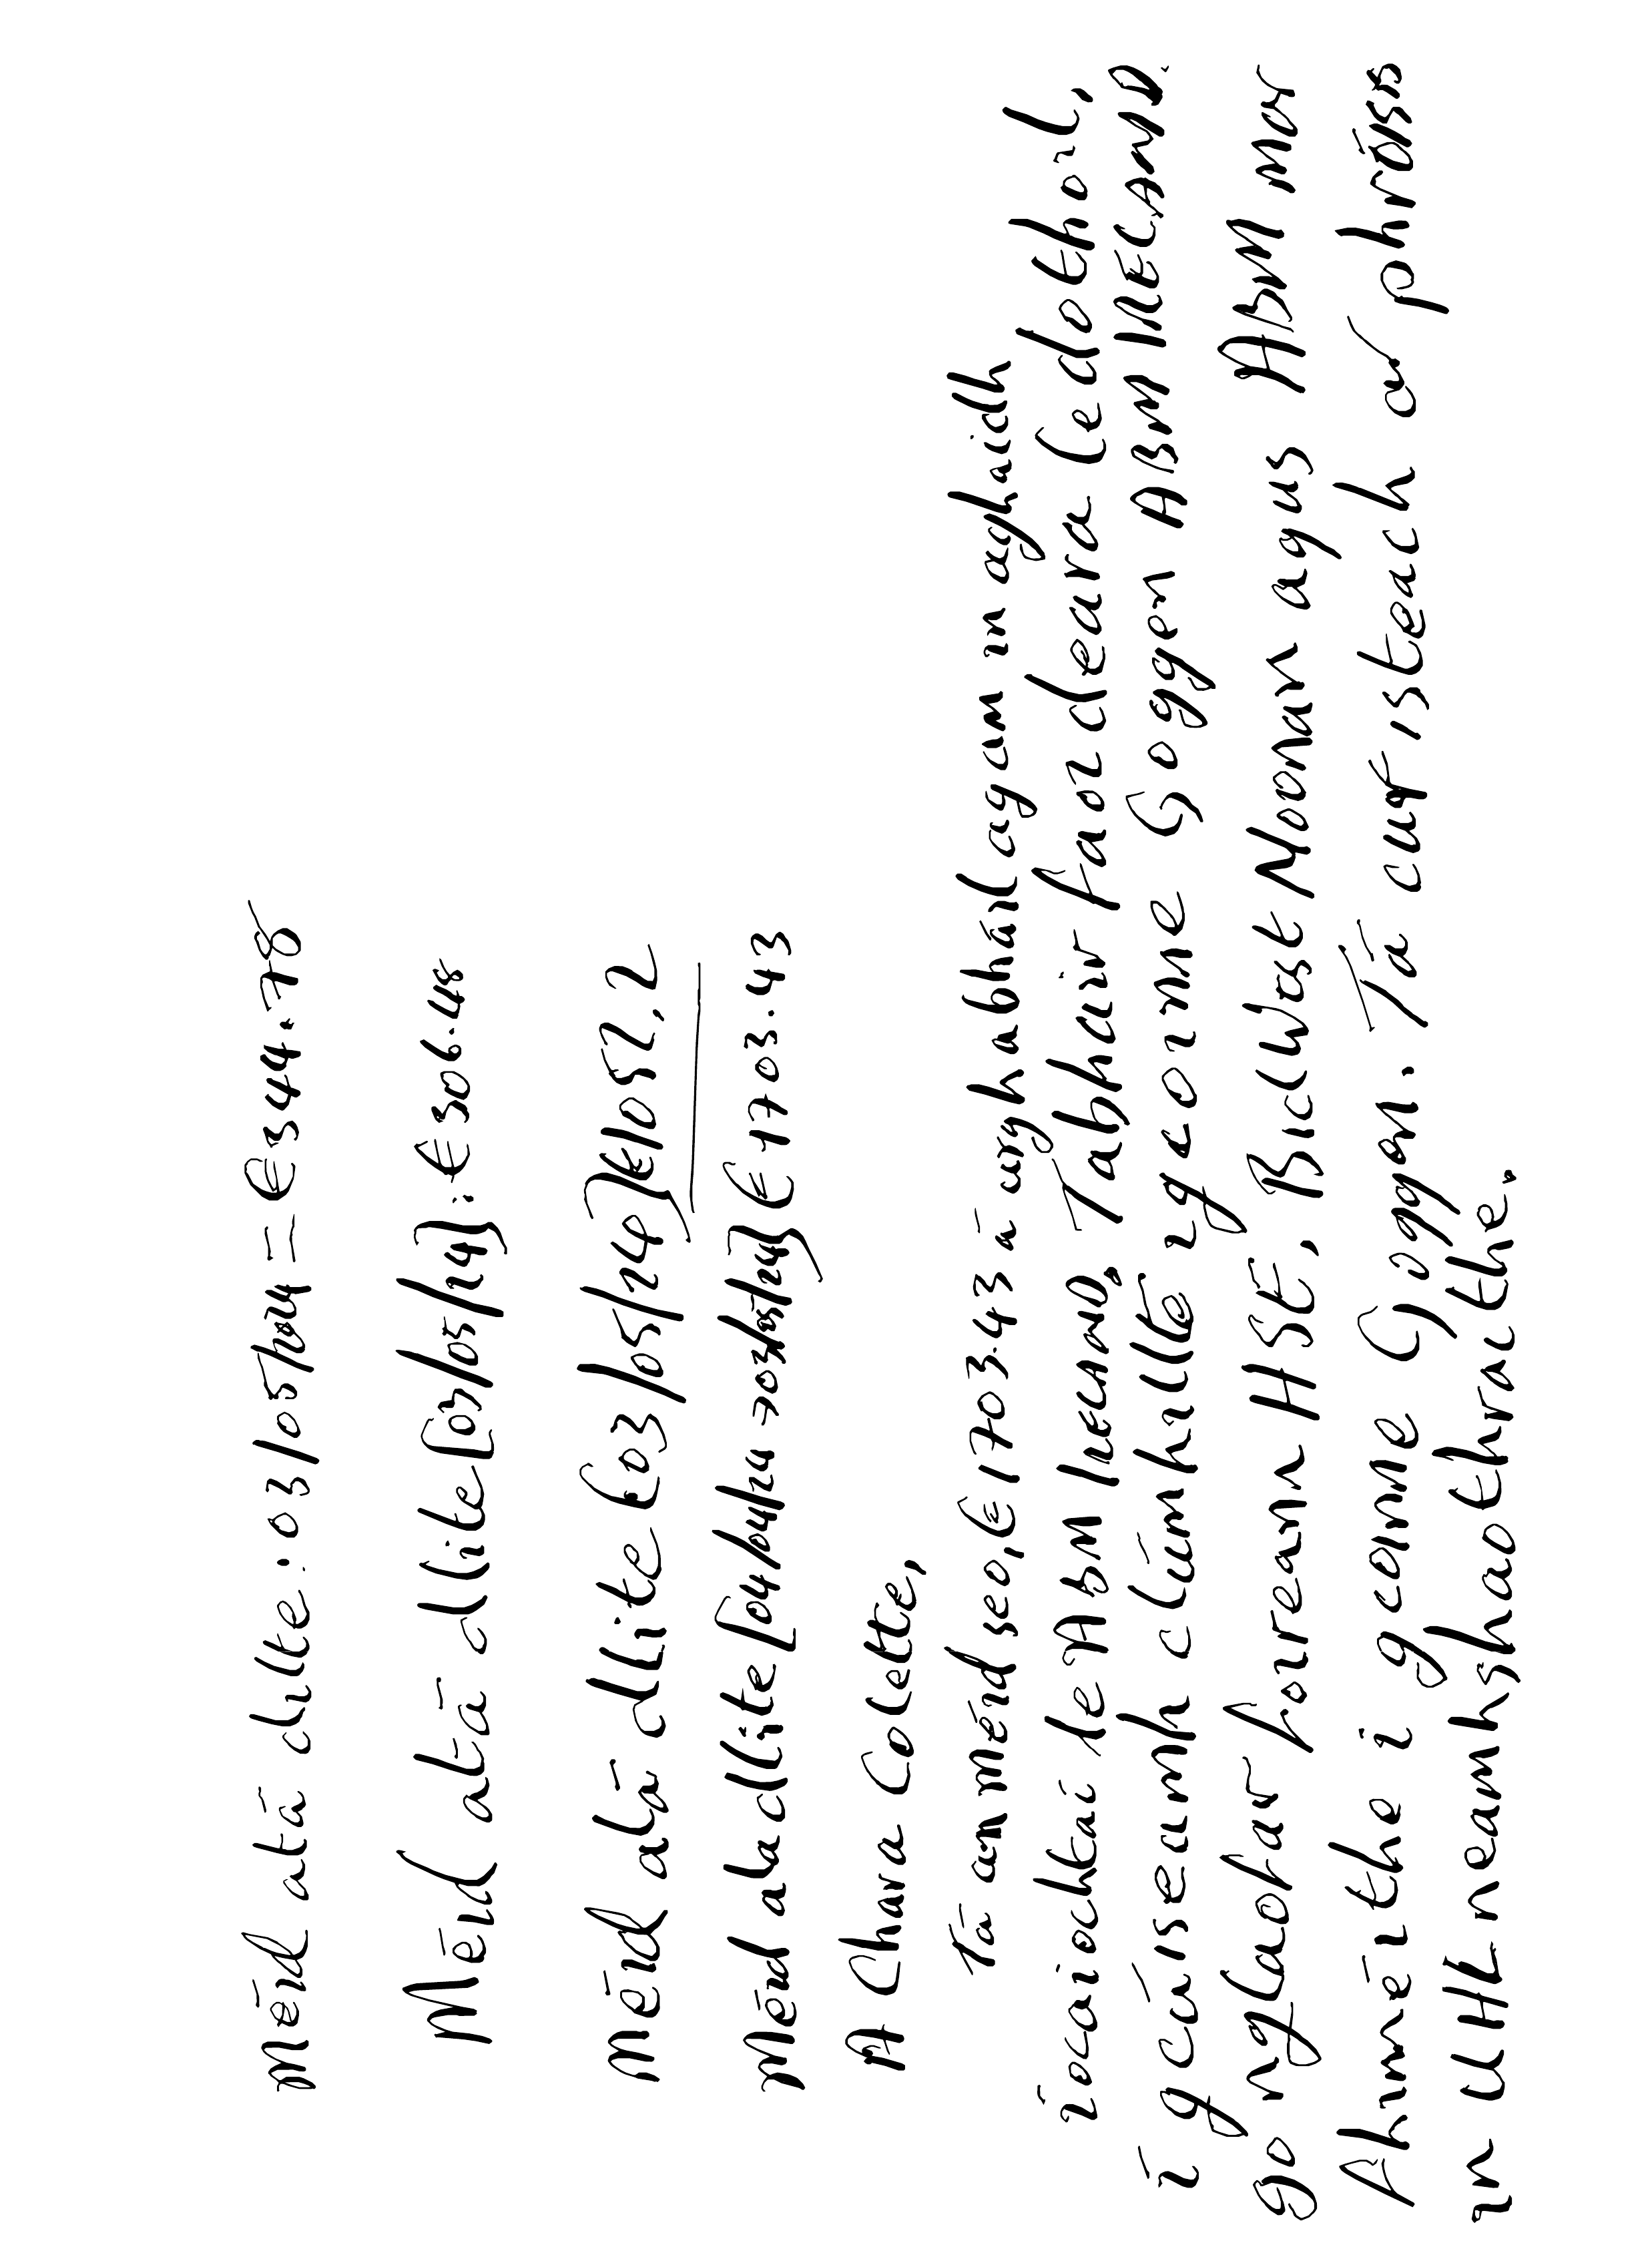 Méid atá dlite: 03/05/2024 – €344.78
Méid atá dlite [03/05/24]: €306.48
Méid atá dlite (03/05/24) €1052.2
Méid atá dlite [04/04/24 → 03/05/24] €1703.43
A Chara Colette,
Tá an méid seo, €1703.43 á urghabháil agam in aghaidh
íocaíochtaí le ABM Ireland. Tabhair faoi deara le do thoil,
i gcúiseamh clúmhillte i gcoinne Goggan ABM IRELAND.
go nglaofar foireann HSE, Bidwest Noonan agus ABM mar
fhinnéithe i gcoinne Goggan. Tá cur isteach ar phróiss
in UHL neamhshaothraithe.